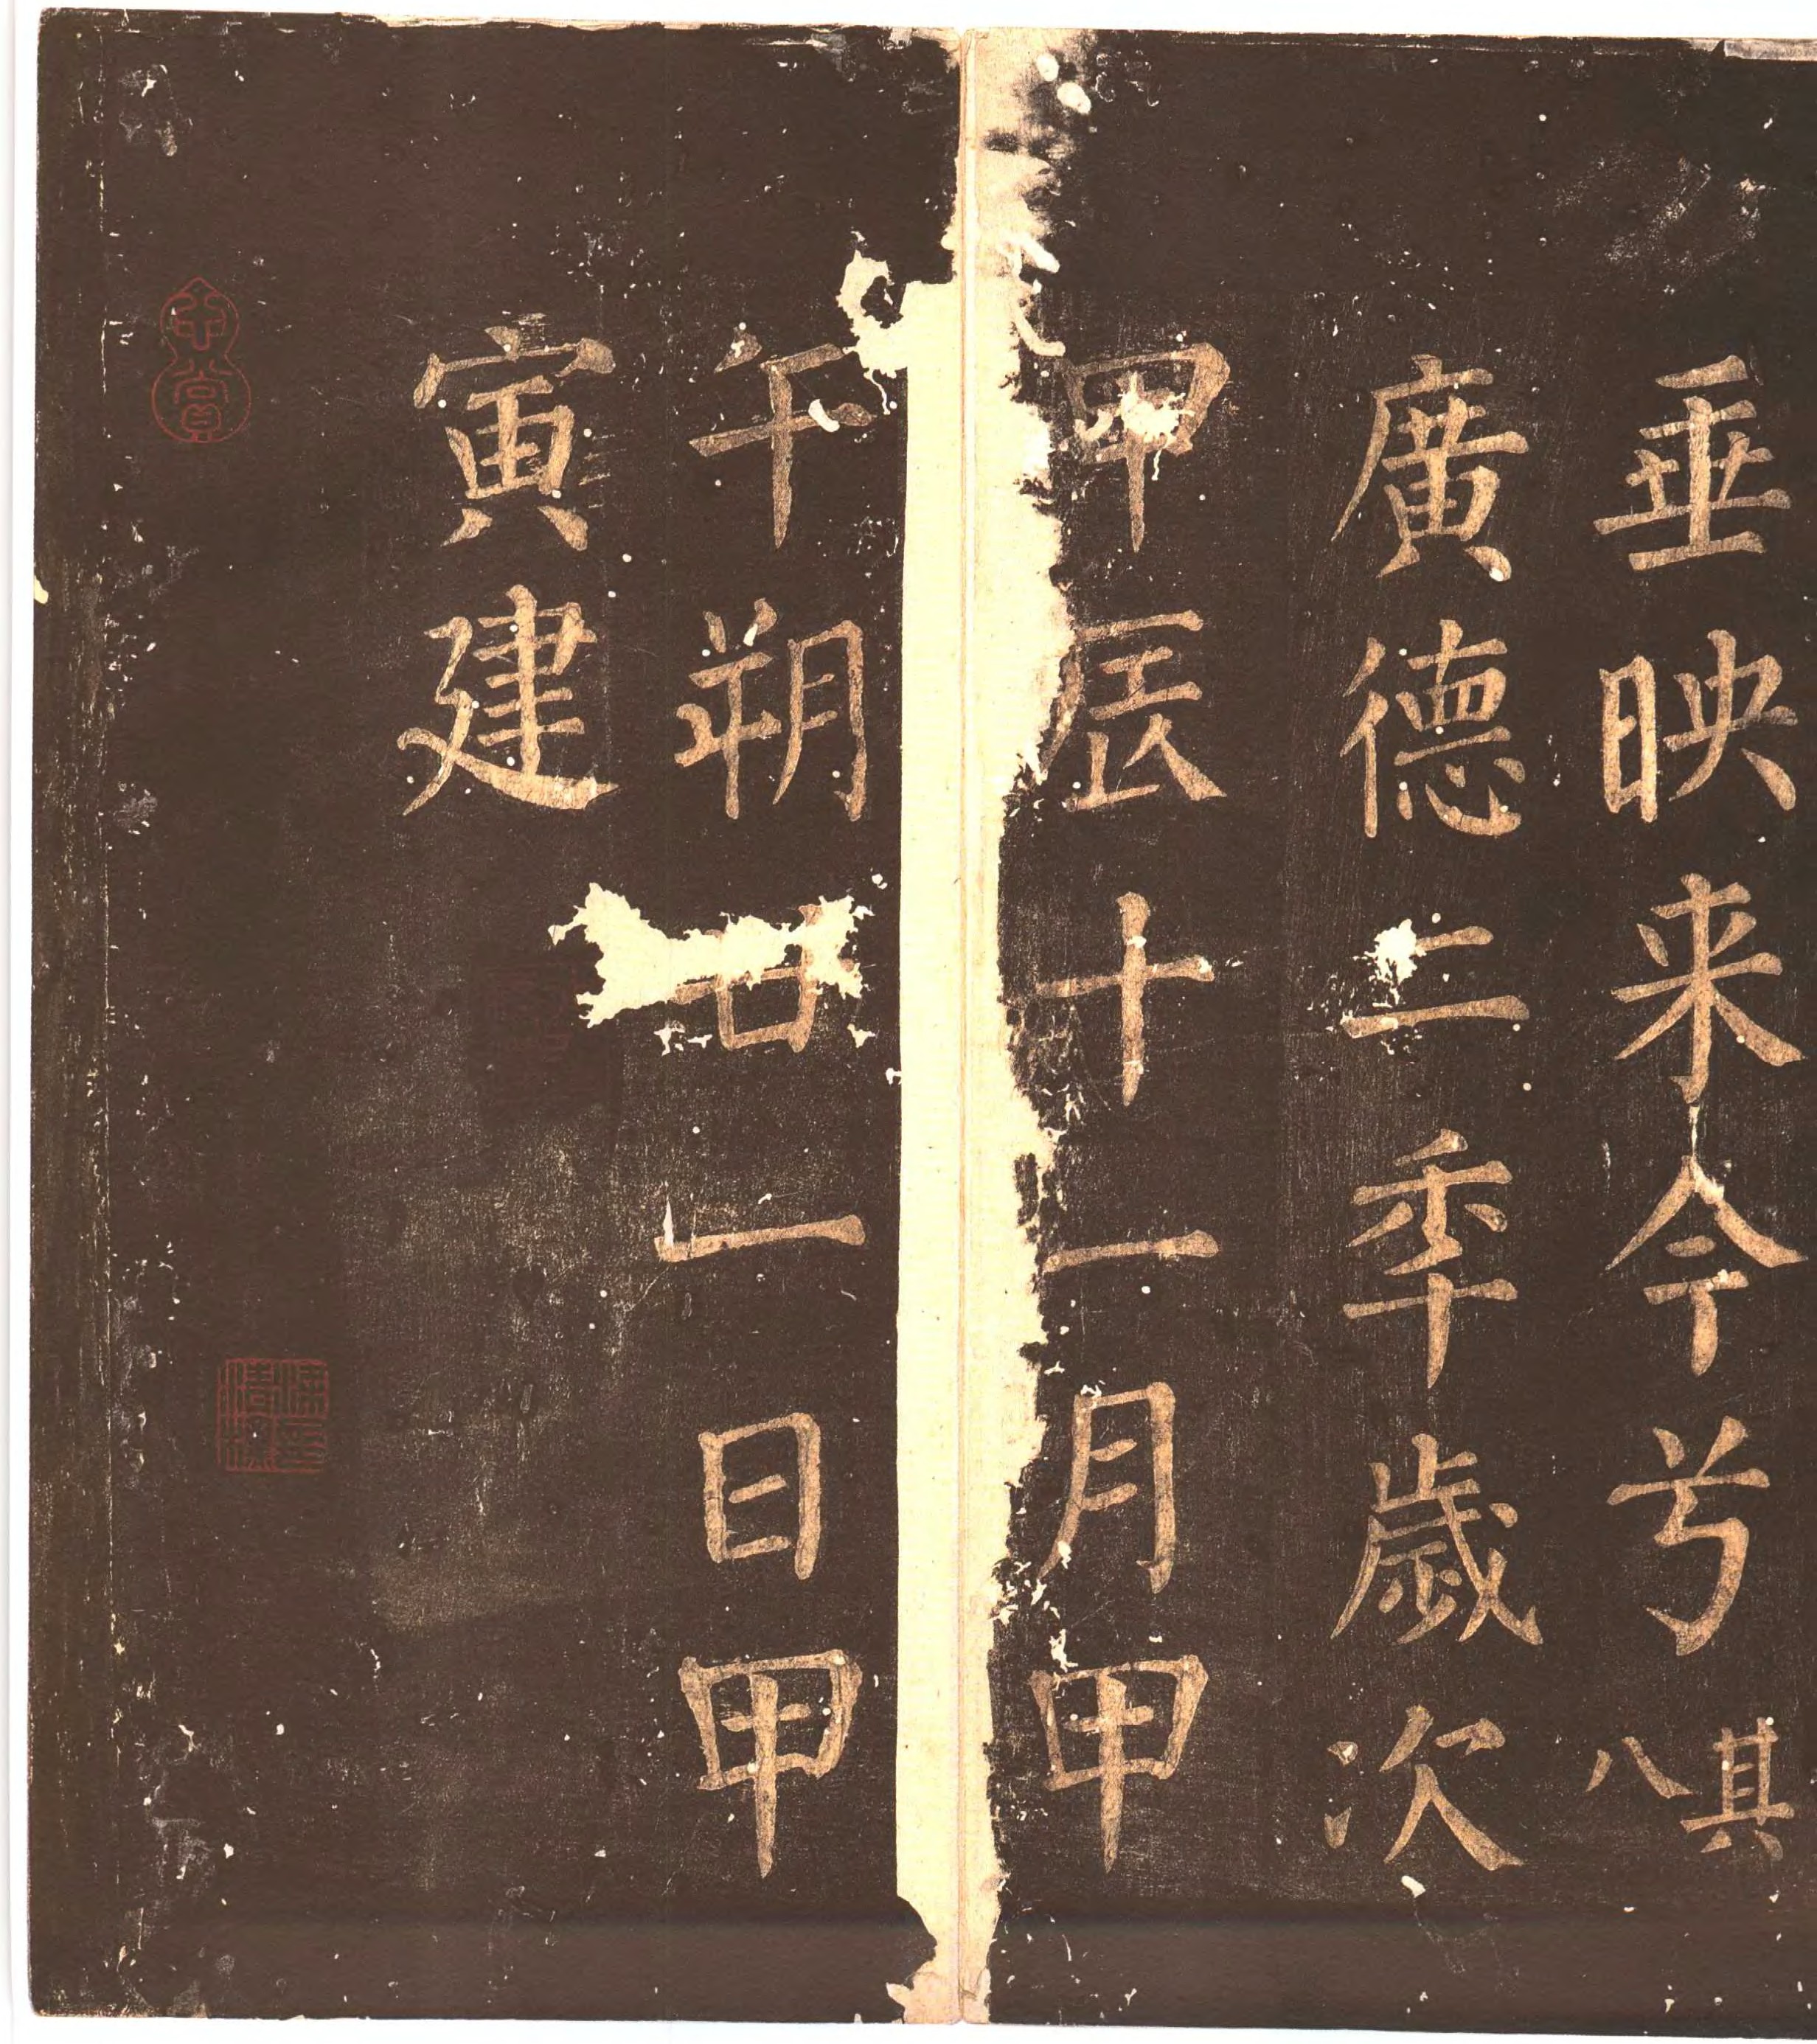 垂映来今兮其八
廣德二秊歲次
甲辰十一月甲
午朔廿一日甲
寅建